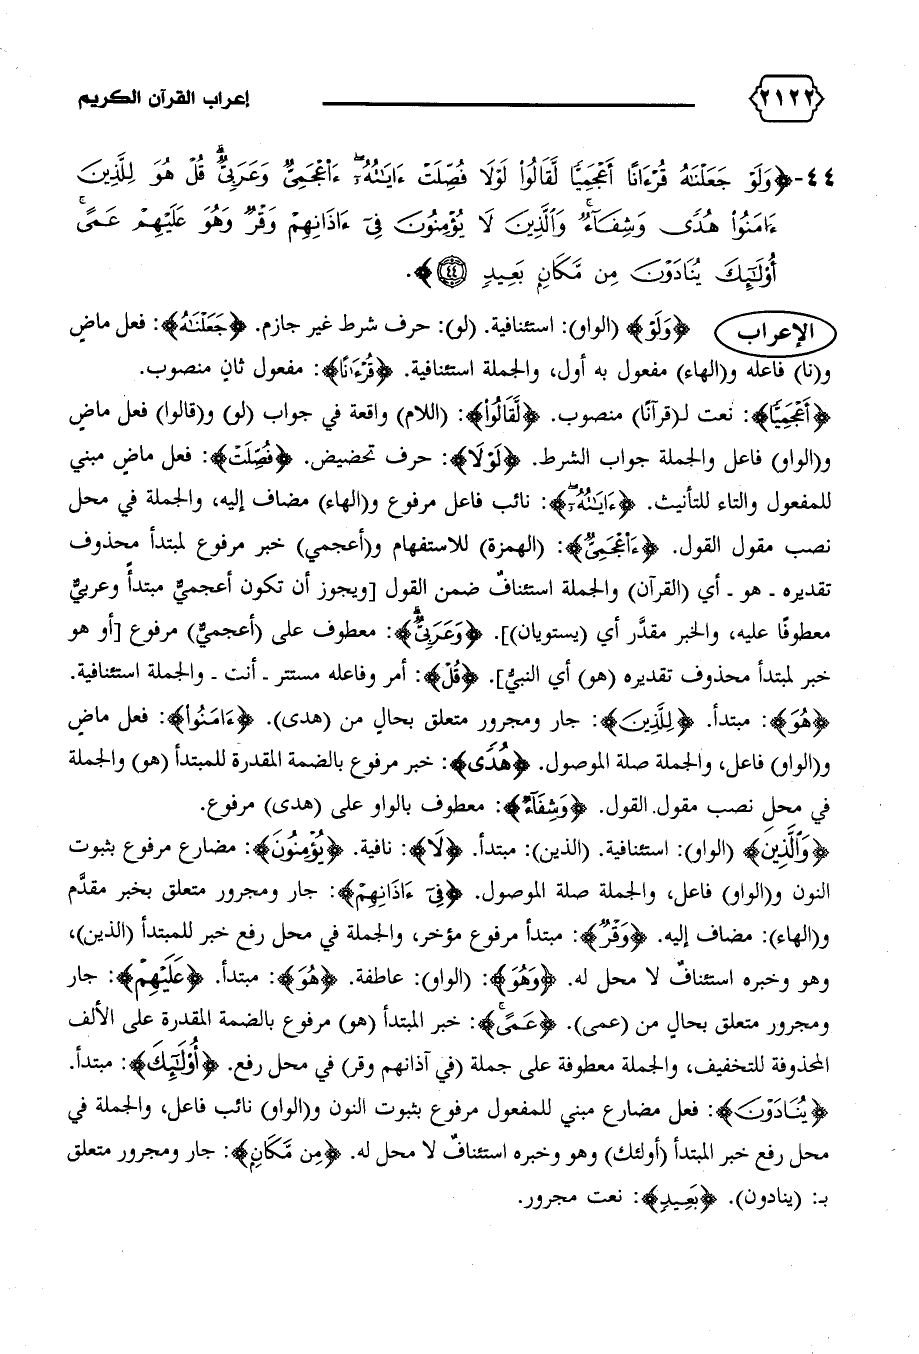 إعراب القرآن الكريم ٢١٢٢
٤٤-﴿وَلَوْ جَعَلْنَٰهُ قُرْءَانًا أَعْجَمِيًّا لَّقَالُوا۟ لَوْلَا فُصِّلَتْ ءَايَٰتُهُۥٓ ءَا۬عْجَمِىٌّ وَعَرَبِىٌّ ۗ قُلْ هُوَ لِلَّذِينَ
ءَامَنُوا۟ هُدًى وَشِفَآءٌ ۚ وَٱلَّذِينَ لَا يُؤْمِنُونَ فِىٓ ءَاذَانِهِمْ وَقْرٌ وَهُوَ عَلَيْهِمْ عَمًى ۚ
أُو۟لَٰٓئِكَ يُنَادَوْنَ مِن مَّكَانٍۭ بَعِيدٍ ٤٤﴾.
الإعراب ﴿وَلَوْ﴾ (الواو): استئنافية. (لو): حرف شرط غير جازم. ﴿جَعَلْنَٰهُ﴾: فعل ماضٍ
و(نا) فاعله و(الهاء) مفعول به أول، والجملة استئنافية. ﴿قُرْءَانًا﴾: مفعول ثانٍ منصوب.
﴿أَعْجَمِيًّا﴾: نعت لـ(قرآنًا) منصوب. ﴿لَّقَالُوا۟﴾: (اللام) واقعة في جواب (لو) و(قالوا) فعل ماضٍ
و(الواو) فاعل والجملة جواب الشرط. ﴿لَوْلَا﴾: حرف تحضيض. ﴿فُصِّلَتْ﴾: فعل ماضٍ مبني
للمفعول والتاء للتأنيث. ﴿ءَايَٰتُهُۥٓ﴾: نائب فاعل مرفوع و(الهاء) مضاف إليه، والجملة في محل
نصب مقول القول. ﴿ءَا۬عْجَمِىٌّ﴾: (الهمزة) للاستفهام و(أعجمي) خبر مرفوع لمبتدأ محذوف
تقديره ـ هو ـ أي (القرآن) والجملة استئنافٌ ضمن القول [ويجوز أن تكون أعجميٌّ مبتدأً وعربيٌّ
معطوفًا عليه، والخبر مقدَّر أي (يستويان)]. ﴿وَعَرَبِىٌّ ۗ﴾: معطوف على (أعجميٌّ) مرفوع [أو هو
خبر لمبتدأ محذوف تقديره (هو) أي النبيُّ]. ﴿قُلْ﴾: أمر وفاعله مستتر ـ أنت ـ والجملة استئنافية.
﴿هُوَ﴾: مبتدأ. ﴿لِلَّذِينَ﴾: جار ومجرور متعلق بحال من (هدى). ﴿ءَامَنُوا۟﴾: فعل ماضٍ
و(الواو) فاعل، والجملة صلة الموصول. ﴿هُدًى﴾: خبر مرفوع بالضمة المقدرة للمبتدأ (هو) والجملة
في محل نصب مقول القول. ﴿وَشِفَآءٌ﴾: معطوف بالواو على (هدى) مرفوع.
﴿وَٱلَّذِينَ﴾ (الواو): استئنافية. (الذين): مبتدأ. ﴿لَا﴾: نافية. ﴿يُؤْمِنُونَ﴾: مضارع مرفوع بثبوت
النون و(الواو) فاعل، والجملة صلة الموصول. ﴿فِىٓ ءَاذَانِهِمْ﴾: جار ومجرور متعلق بخبر مقدَّم
و(الهاء): مضاف إليه. ﴿وَقْرٌ﴾: مبتدأ مرفوع مؤخر، والجملة في محل رفع خبر للمبتدأ (الذين)،
وهو وخبره استئنافٌ لا محل له. ﴿وَهُوَ﴾: (الواو): عاطفة. ﴿هُوَ﴾: مبتدأ. ﴿عَلَيْهِمْ﴾: جار
ومجرور متعلق بحالٍ من (عمى). ﴿عَمًى ۚ﴾: خبر المبتدأ (هو) مرفوع بالضمة المقدرة على الألف
المحذوفة للتخفيف، والجملة معطوفة على جملة (في آذانهم وقر) في محل رفع. ﴿أُو۟لَٰٓئِكَ﴾: مبتدأ.
﴿يُنَادَوْنَ﴾: فعل مضارع مبني للمفعول مرفوع بثبوت النون و(الواو) نائب فاعل، والجملة في
محل رفع خبر المبتدأ (أولئك) وهو وخبره استئنافٌ لا محل له. ﴿مِن مَّكَانٍۭ﴾: جار ومجرور متعلق
بـ: (ينادون). ﴿بَعِيدٍ﴾: نعت مجرور.